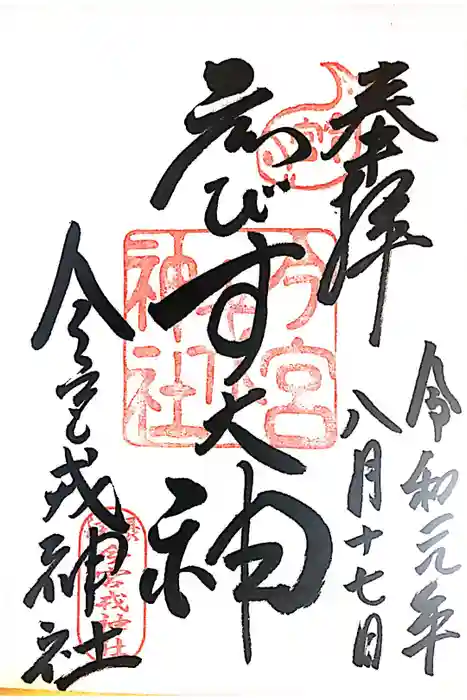 奉拝
令和元年
八月十七日
ゑびす大神
今宮戎神社
今宮
神社